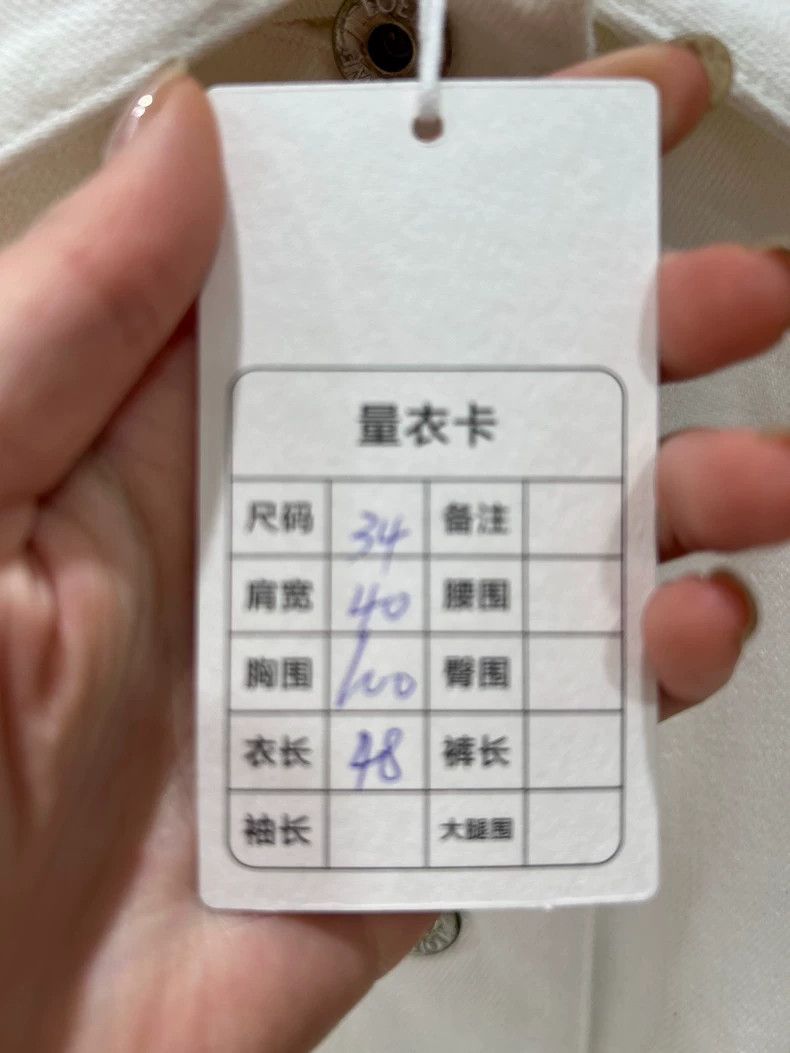 量衣卡
尺码 34 备注
肩宽 40 腰围
胸围 100 臀围
衣长 48 裤长
袖长 大腿围